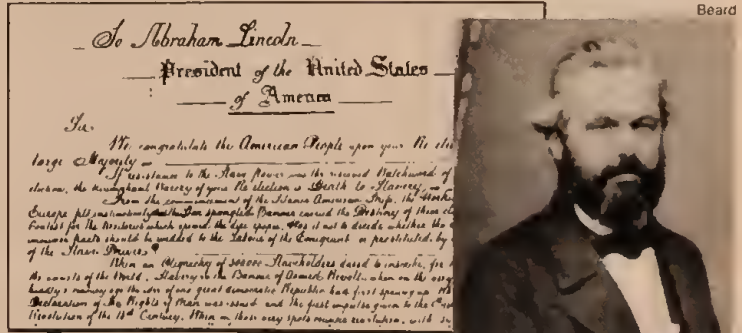 Beard
To Abraham Lincoln
President of the United States
of America
Sir.
We congratulate the American People upon your Re elec
large Majority
If resistance to the Slave Power was the reserved Watchword of
election, the triumphant Warcry of your Re election is Death to Slavery,
From the commencement of the Titanic American Strife, the Workin
Europe felt instinctively that the Star spangled Banner carried the Destiny of their cla
Contest for the territories which opened the dire epopee, Was it not to decide whether the
immense tracts should be wedded to the Labour of the Emigrant or prostituted by
of the Slave Driver?
When an Oligarchy of 300000 Slaveholders dared to inscribe, for
the annals of the World, Slavery on the Banner of Armed Revolt, when on the very
hardly a century ago the idea of one great democratic Republic had first sprung up,
Declaration of the Rights of Man was issued and the first impulse given to the
Revolution of the 18th Century, When on those very spots counter revolution, with